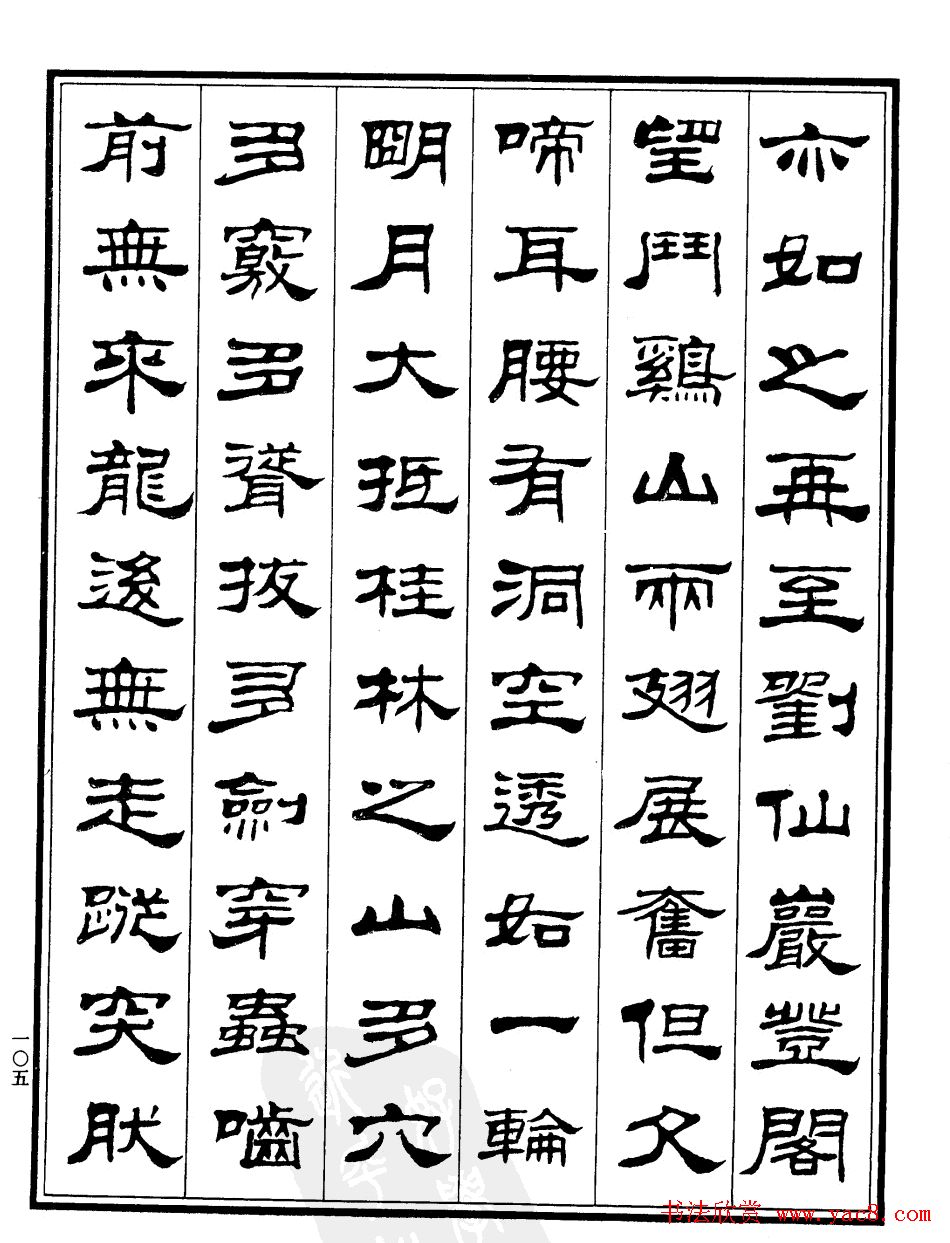 亦如之再至劉仙巖登閣
望鬥鷄山兩翅展奮但欠
啼耳腰有洞空透如一輪
明月大抵桂林之山多穴
多竅多聳拔多劍穿蟲嚙
前無來龍後無走蹤突肰
一〇五
书法欣赏 www.yac8.com